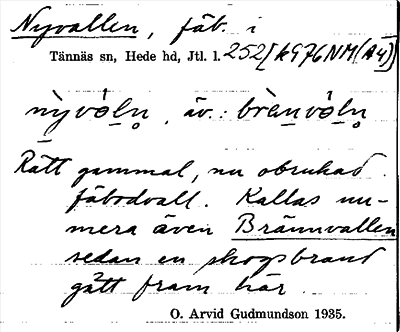 Nyvallen, fäb. i
Tännäs sn, Hede hd, Jtl. l. 252[kG76NM(A4)]
nỳvòḷn̥ äv. brèn̲vòḷn̥
Rätt gammal, nu obrukad
fäbodvall. Kallas nu-
mera även Brännvallen
sedan en skogsbrand
gått fram här.
O. Arvid Gudmundson 1935.